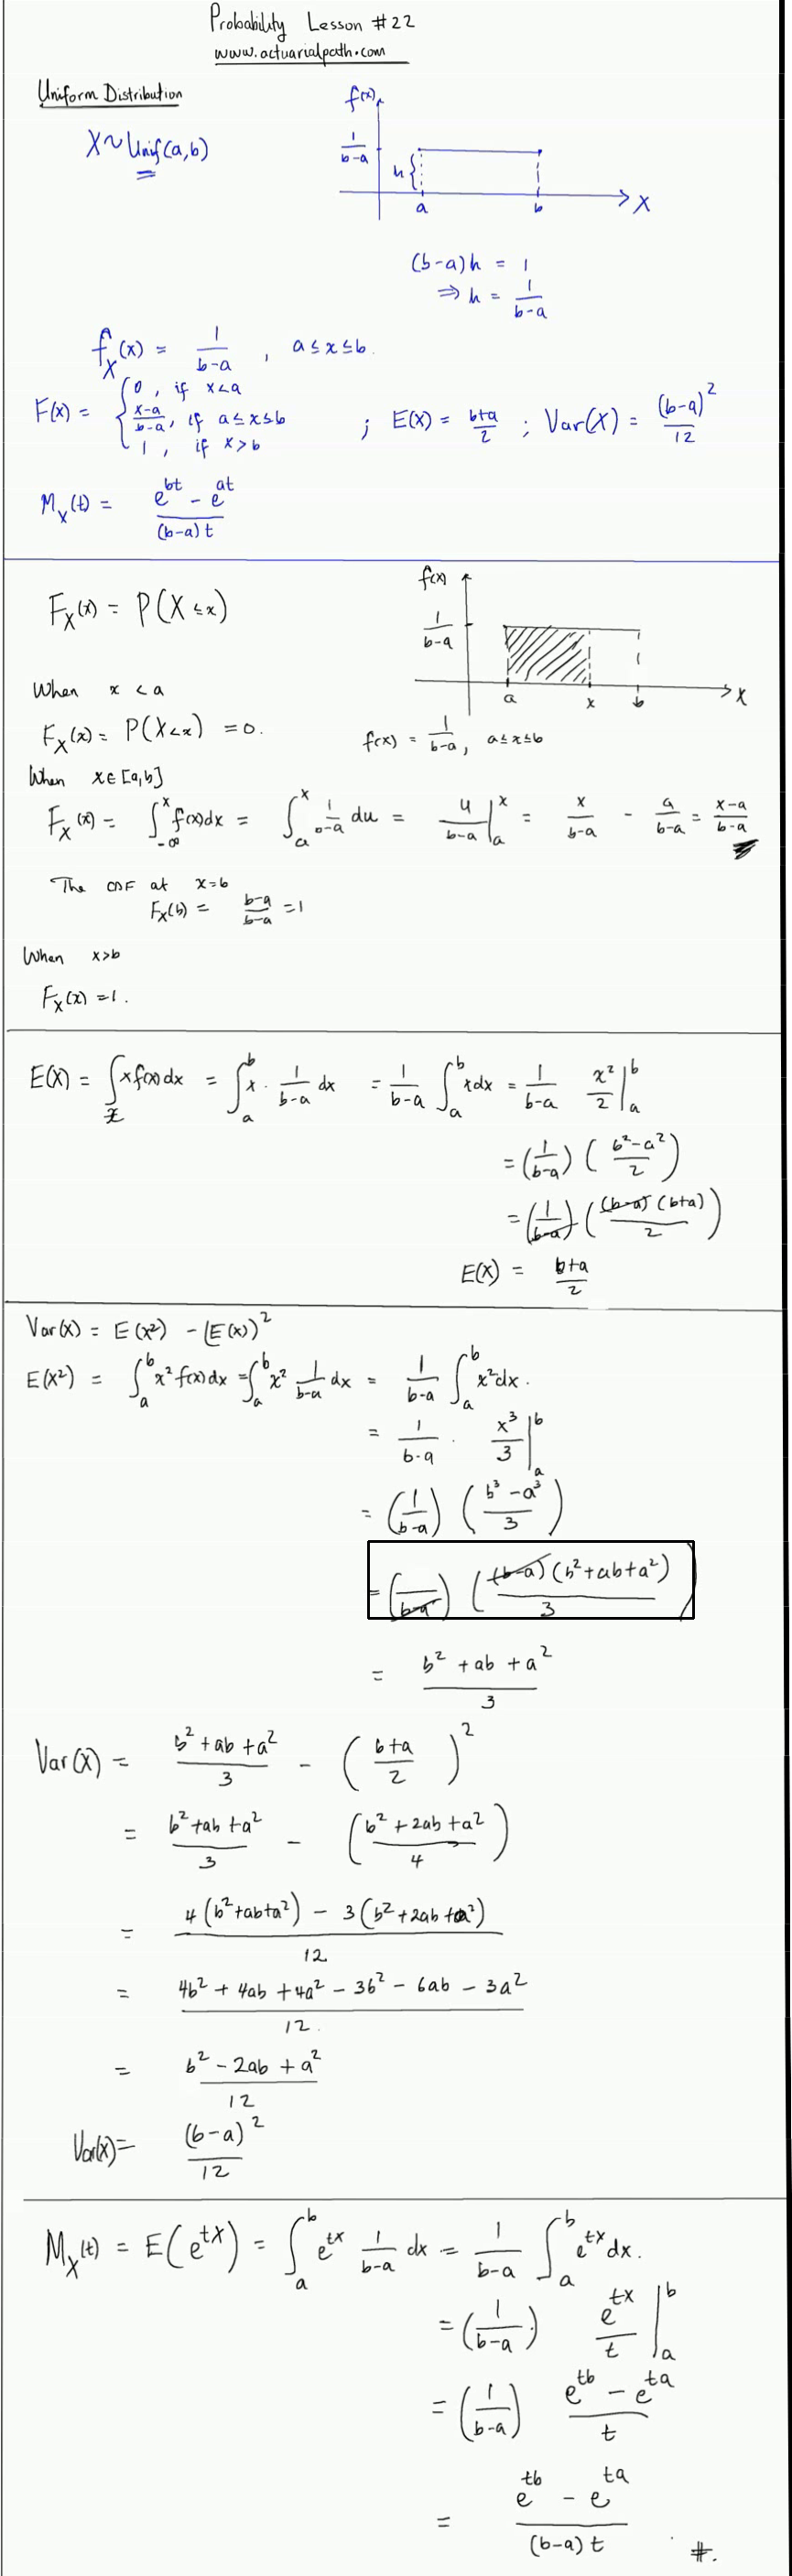 Probability Lesson #22
www.actuarialpath.com
Uniform Distribution
X ~ Unif(a,b)
f(x)
1/(b-a)
h{
a b X
(b-a)h = 1
⇒ h = 1/(b-a)
f_X(x) = 1/(b-a) , a ≤ x ≤ b.
F(x) = { 0 , if x < a
(x-a)/(b-a), if a ≤ x ≤ b
1 , if x > b
; E(X) = (b+a)/2 ; Var(X) = (b-a)²/12
M_X(t) = (e^{bt} - e^{at})/((b-a)t)
F_X(x) = P(X ≤ x)
f(x)
1/(b-a)
a x b X
f(x) = 1/(b-a), a ≤ x ≤ b
When x < a
F_X(x) = P(X < x) = 0.
When x ∈ [a,b]
F_X(x) = ∫_{-∞}^{x} f(x)dx = ∫_a^x 1/(b-a) du = u/(b-a) |_a^x = x/(b-a) - a/(b-a) = (x-a)/(b-a)
The CDF at x=b
F_X(b) = (b-a)/(b-a) = 1
When x > b
F_X(x) = 1.
E(X) = ∫_x x f(x) dx = ∫_a^b x · 1/(b-a) dx = 1/(b-a) ∫_a^b x dx = 1/(b-a) x²/2 |_a^b
= (1/(b-a)) ((b²-a²)/2)
= (1/(b-a)) ((b-a)(b+a)/2)
E(X) = (b+a)/2
Var(X) = E(X²) - (E(X))²
E(X²) = ∫_a^b x² f(x) dx = ∫_a^b x² 1/(b-a) dx = 1/(b-a) ∫_a^b x² dx.
= 1/(b-a) · x³/3 |_a^b
= (1/(b-a)) ((b³-a³)/3)
= (/(b-a)) ((b-a)(b²+ab+a²)/3)
= (b²+ab+a²)/3
Var(X) = (b²+ab+a²)/3 - ((b+a)/2)²
= (b²+ab+a²)/3 - ((b²+2ab+a²)/4)
= (4(b²+ab+a²) - 3(b²+2ab+a²))/12
= (4b²+4ab+4a²-3b²-6ab-3a²)/12.
= (b²-2ab+a²)/12
Var(X) = (b-a)²/12
M_X(t) = E(e^{tX}) = ∫_a^b e^{tx} 1/(b-a) dx = 1/(b-a) ∫_a^b e^{tx} dx.
= (1/(b-a)) e^{tx}/t |_a^b
= (1/(b-a)) (e^{tb} - e^{ta})/t
= (e^{tb} - e^{ta})/((b-a)t) #.